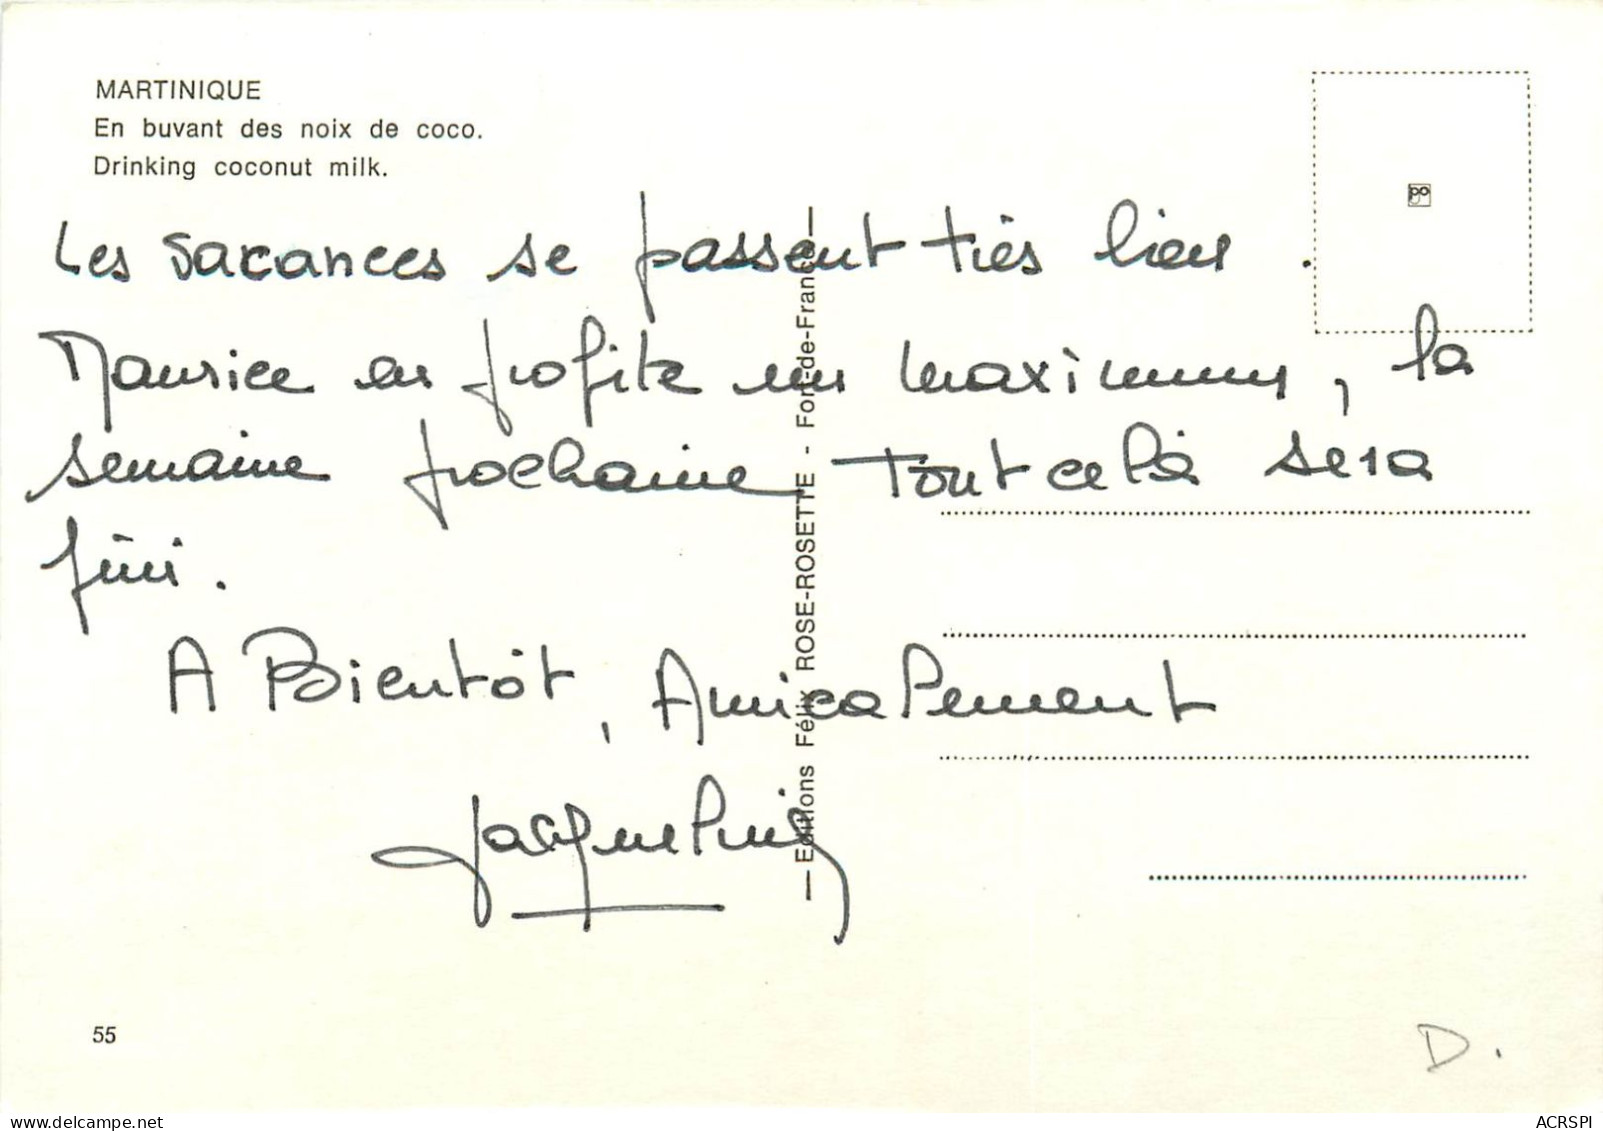 MARTINIQUE
En buvant des noix de coco.
Drinking coconut milk.
po
Les vacances se passent très bien.
Maurice en profite un maximum, la
semaine prochaine tout celà sera
fini.
A Bientôt, Amicalement
— Editions Félix ROSE-ROSETTE - Fort-de-France —
55
D.
ACRSPI